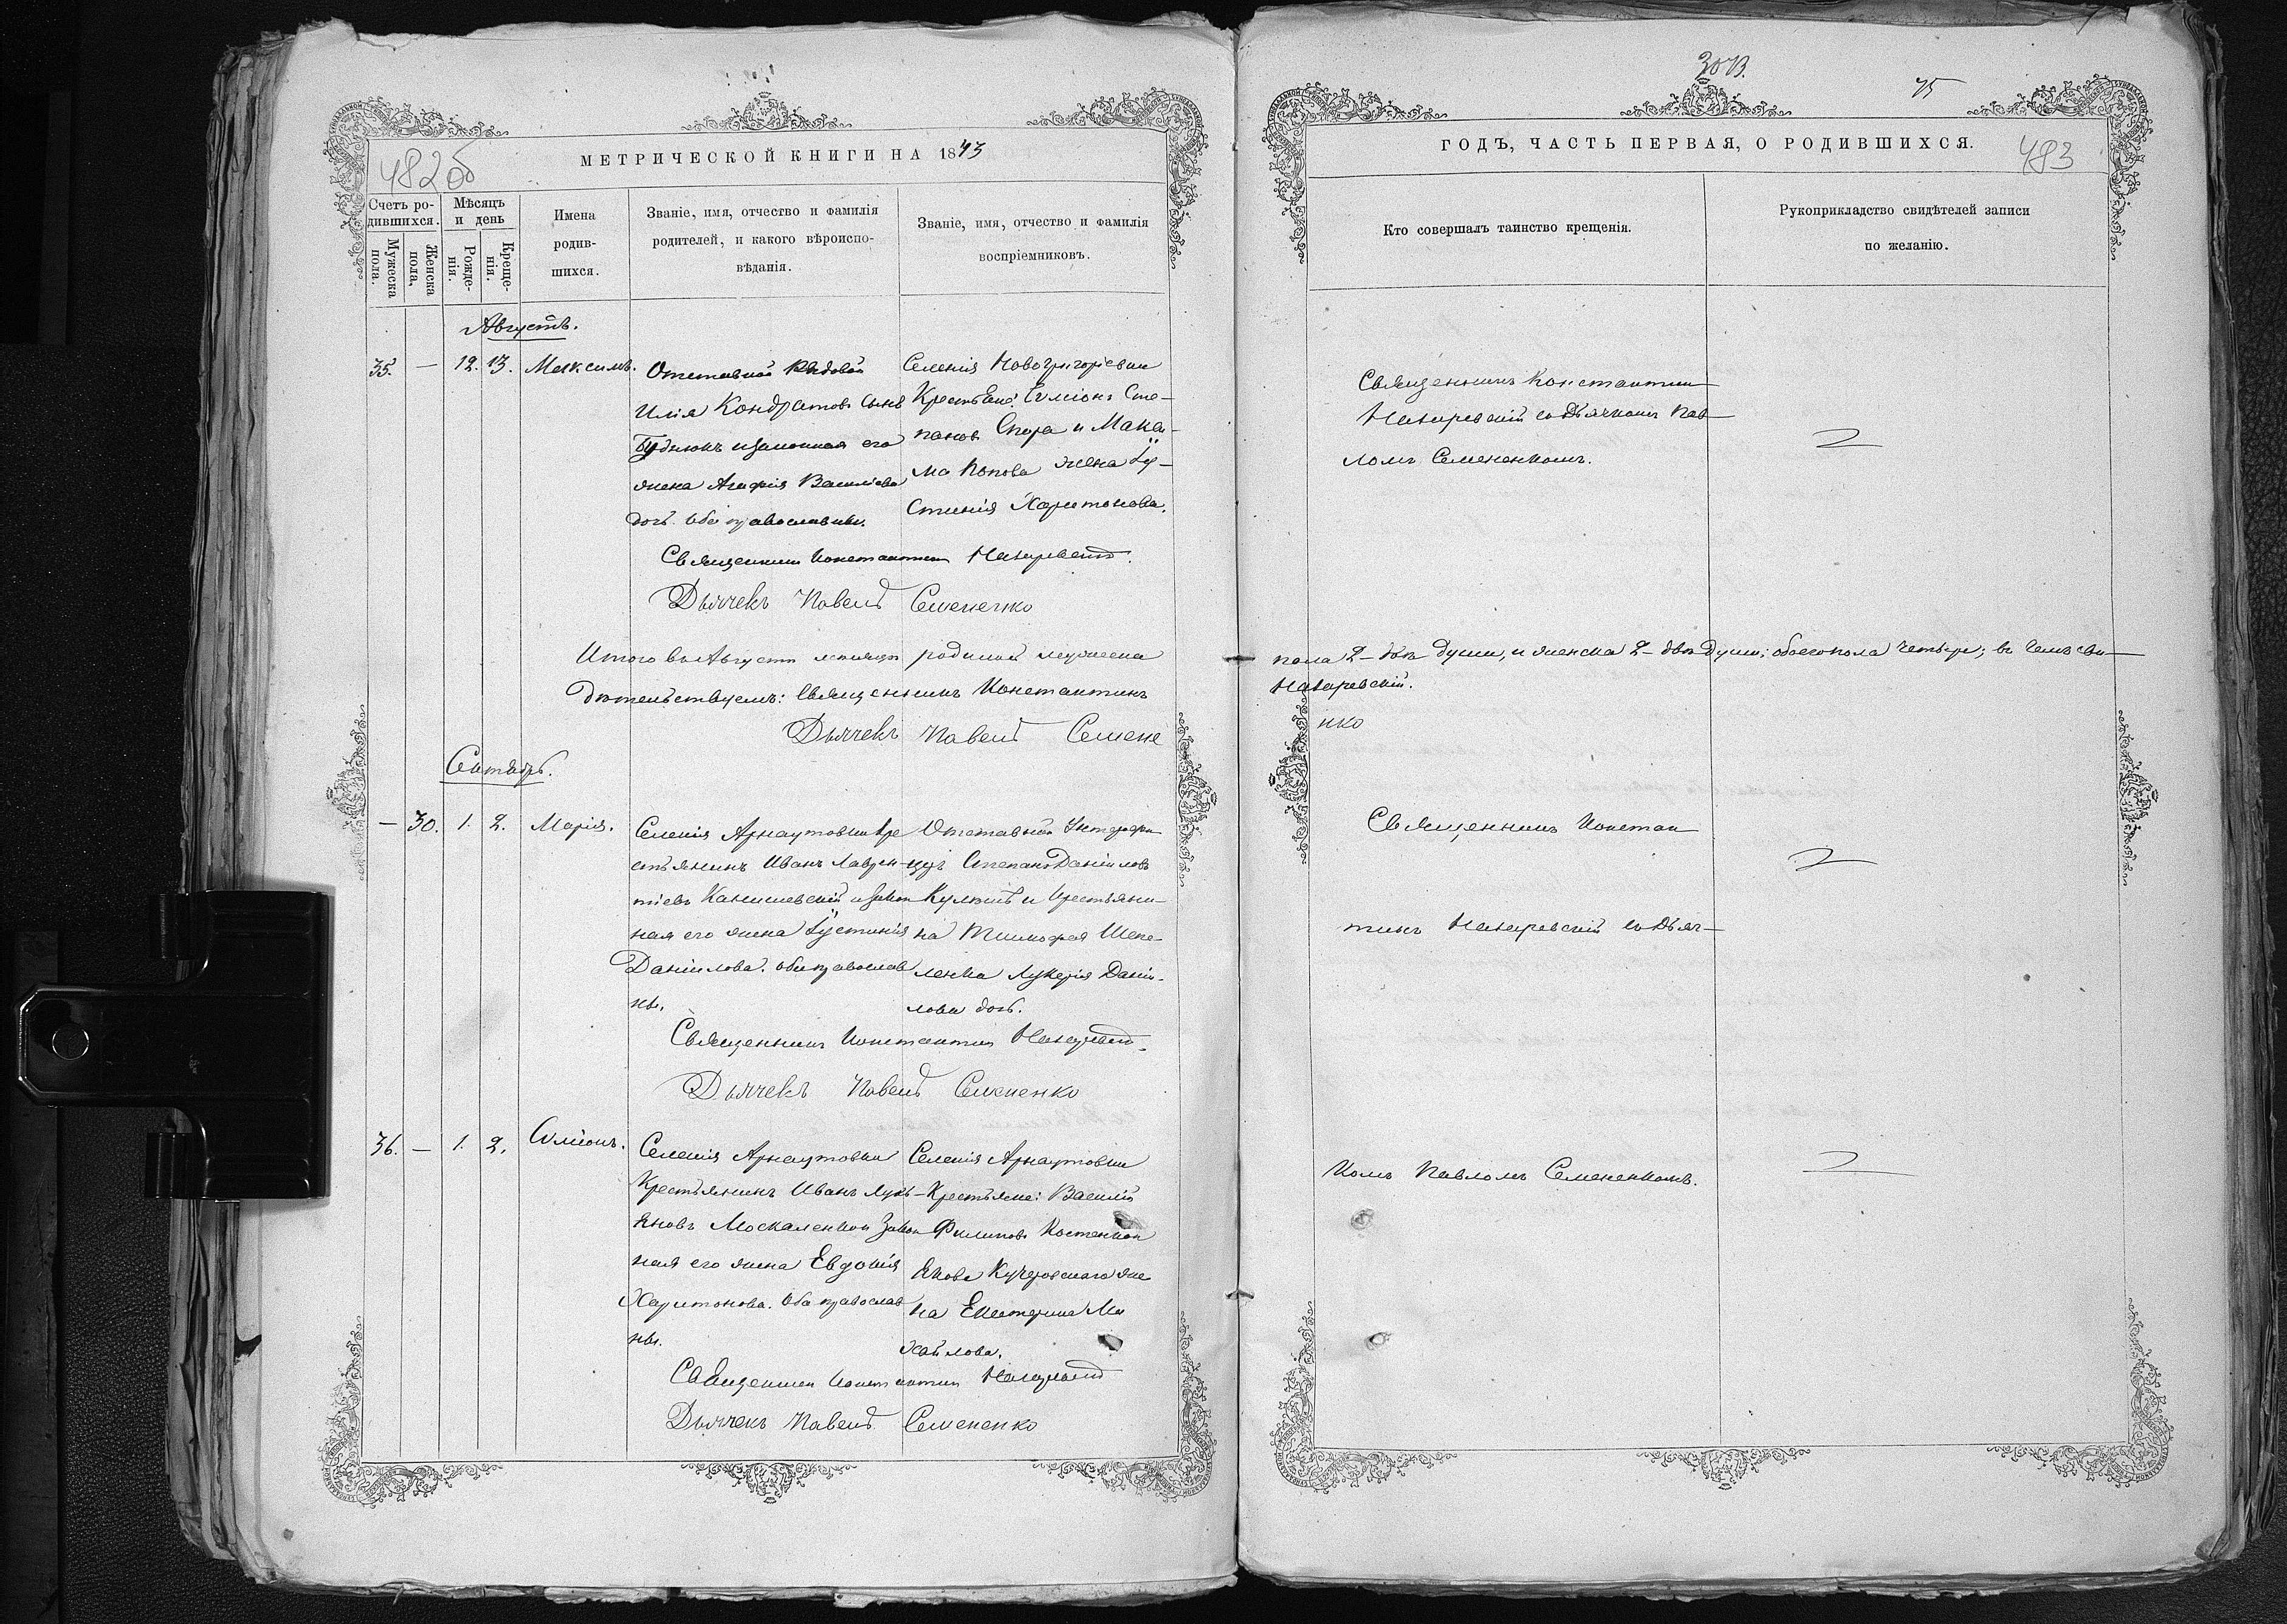 482 об
МЕТРИЧЕСКОЙ КНИГИ НА 1873
Счетъ ро-
дившихся.
Мужеска
пола.
Женска
пола,
Мѣсяцъ
и день
Рожде-
нія.
Креще-
нія.
Имена
родив-
шихся.
Званіе, имя, отчество и фамилія
родителей, и какого вѣроиспо-
вѣданія.
Званіе, имя, отчество и фамилія
воспріемниковъ.
Августъ.
35. — 12. 13. Максимъ.
Отставной Рядовой
Илія Кондратовъ сынъ
и законная его
жена Агафія Василіева
дочь. оба православны.
Селенія Новогригоріевки
Крестьяне: Симіонъ Сте-
пановъ Спора и Мака-
ра Попова жена Іу-
стинія Харитонова.
Священникъ Константинъ
Дьячекъ Павелъ Семененко
Итого въ Августѣ мѣсяцѣ родилось мужеска
дѣтельствуемъ: Священникъ Константинъ
Дьячекъ Павелъ Семене
Сентябрь.
— 30. 1. 2. Марія.
Селенія Арнаутовки Кре
стьянинъ Иванъ Лаврен-
тіевъ и закон
ная его жена Іустинія
Даніилова. оба православ
ны.
Отставной Унтерофи
церъ Степанъ Даніиловъ
и Крестьяни-
на Тимофея Шепе-
ленка Лукерія Даніи-
лова дочь.
Священникъ Константинъ
Дьячекъ Павелъ Семененко
36. — 1. 2. Симіонъ.
Селенія Арнаутовки
Крестьянинъ Иванъ Лукь-
яновъ Москаленко и закон
ная его жена Евдокія
Харитонова. оба православ
ны.
Селенія Арнаутовки
Крестьяне: Василій
Филиповъ Костенко и
Якова Кучеровскаго же
на Екатерина Ми
хайлова.
Священникъ Константинъ
Дьячекъ Павелъ Семененко
75
ГОДЪ, ЧАСТЬ ПЕРВАЯ, О РОДИВШИХСЯ.
483
Кто совершалъ таинство крещенія.
Рукоприкладство свидѣтелей записи
по желанію.
Священникъ Константинъ
съ Дьячкомъ Пав-
ломъ Семененкомъ.
пола 2 – двѣ души, и женска 2 – двѣ души; обоего пола четыре; въ чемъ сви-
нко
Священникъ Констан
тинъ съ Дьяч-
комъ Павломъ Семененкомъ.